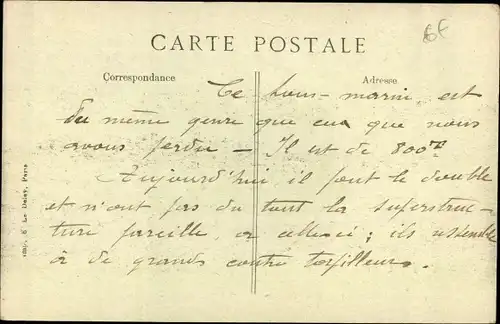 6F
CARTE POSTALE
Correspondance
Adresse
Ce sous-marin est
du même genre que ceux que nous
avons perdu — Il est de 800tx
Aujourd'hui, il font le double
et n'ont pas du tout la superstruc-
ture pareille, a celleci; ils
à de grands contre torpilleurs.
Imp. E. Le Deley, Paris